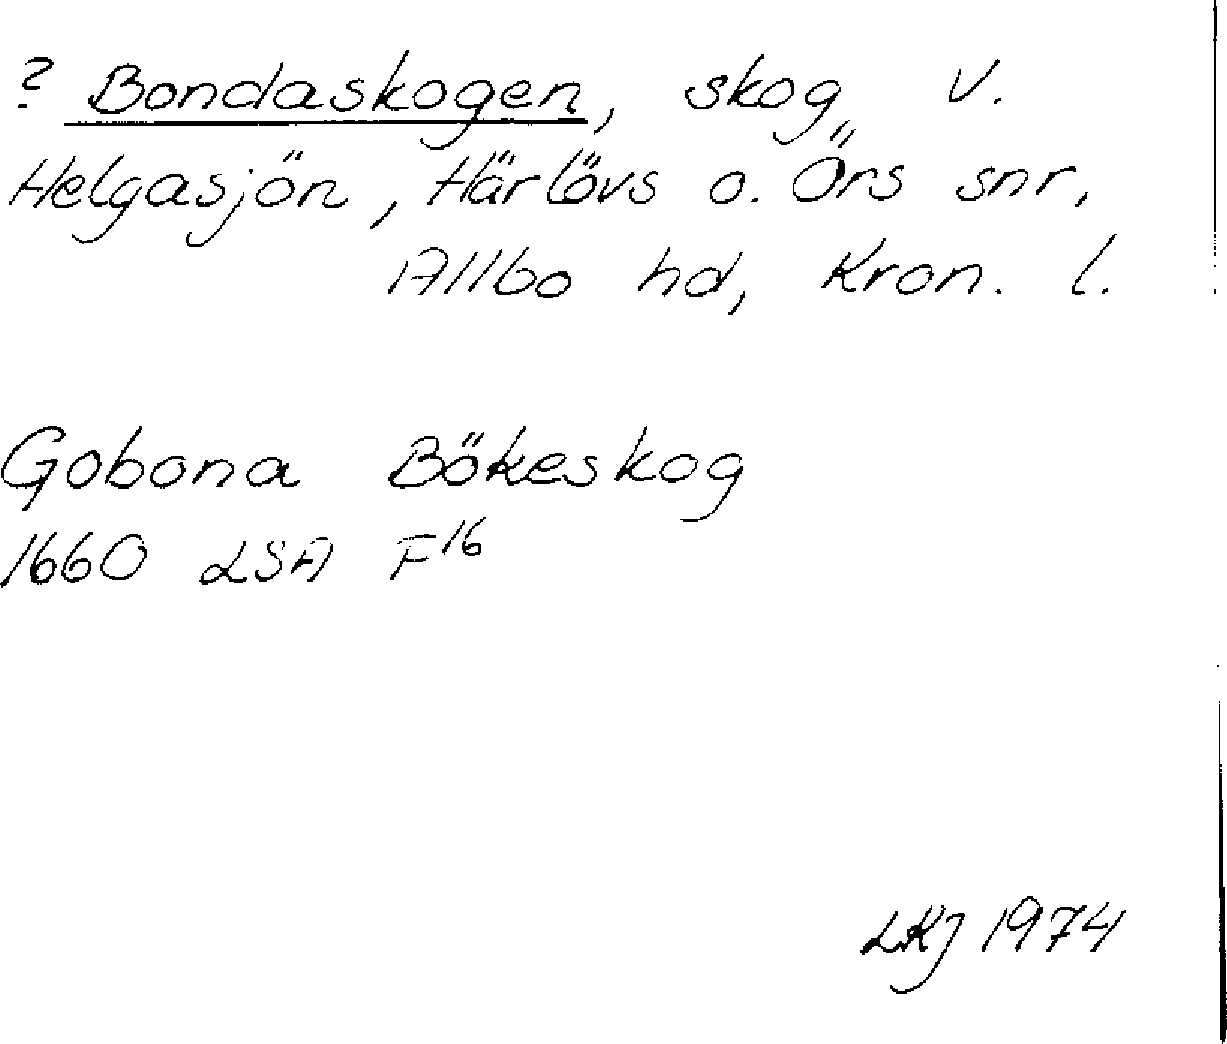 ? Bondaskogen, skog v.
Helgasjön, Härlövs o. Örs snr,
Allbo hd, Kron. l.
Gobona Bökeskog
1660 LSA F16
LKJ 1974